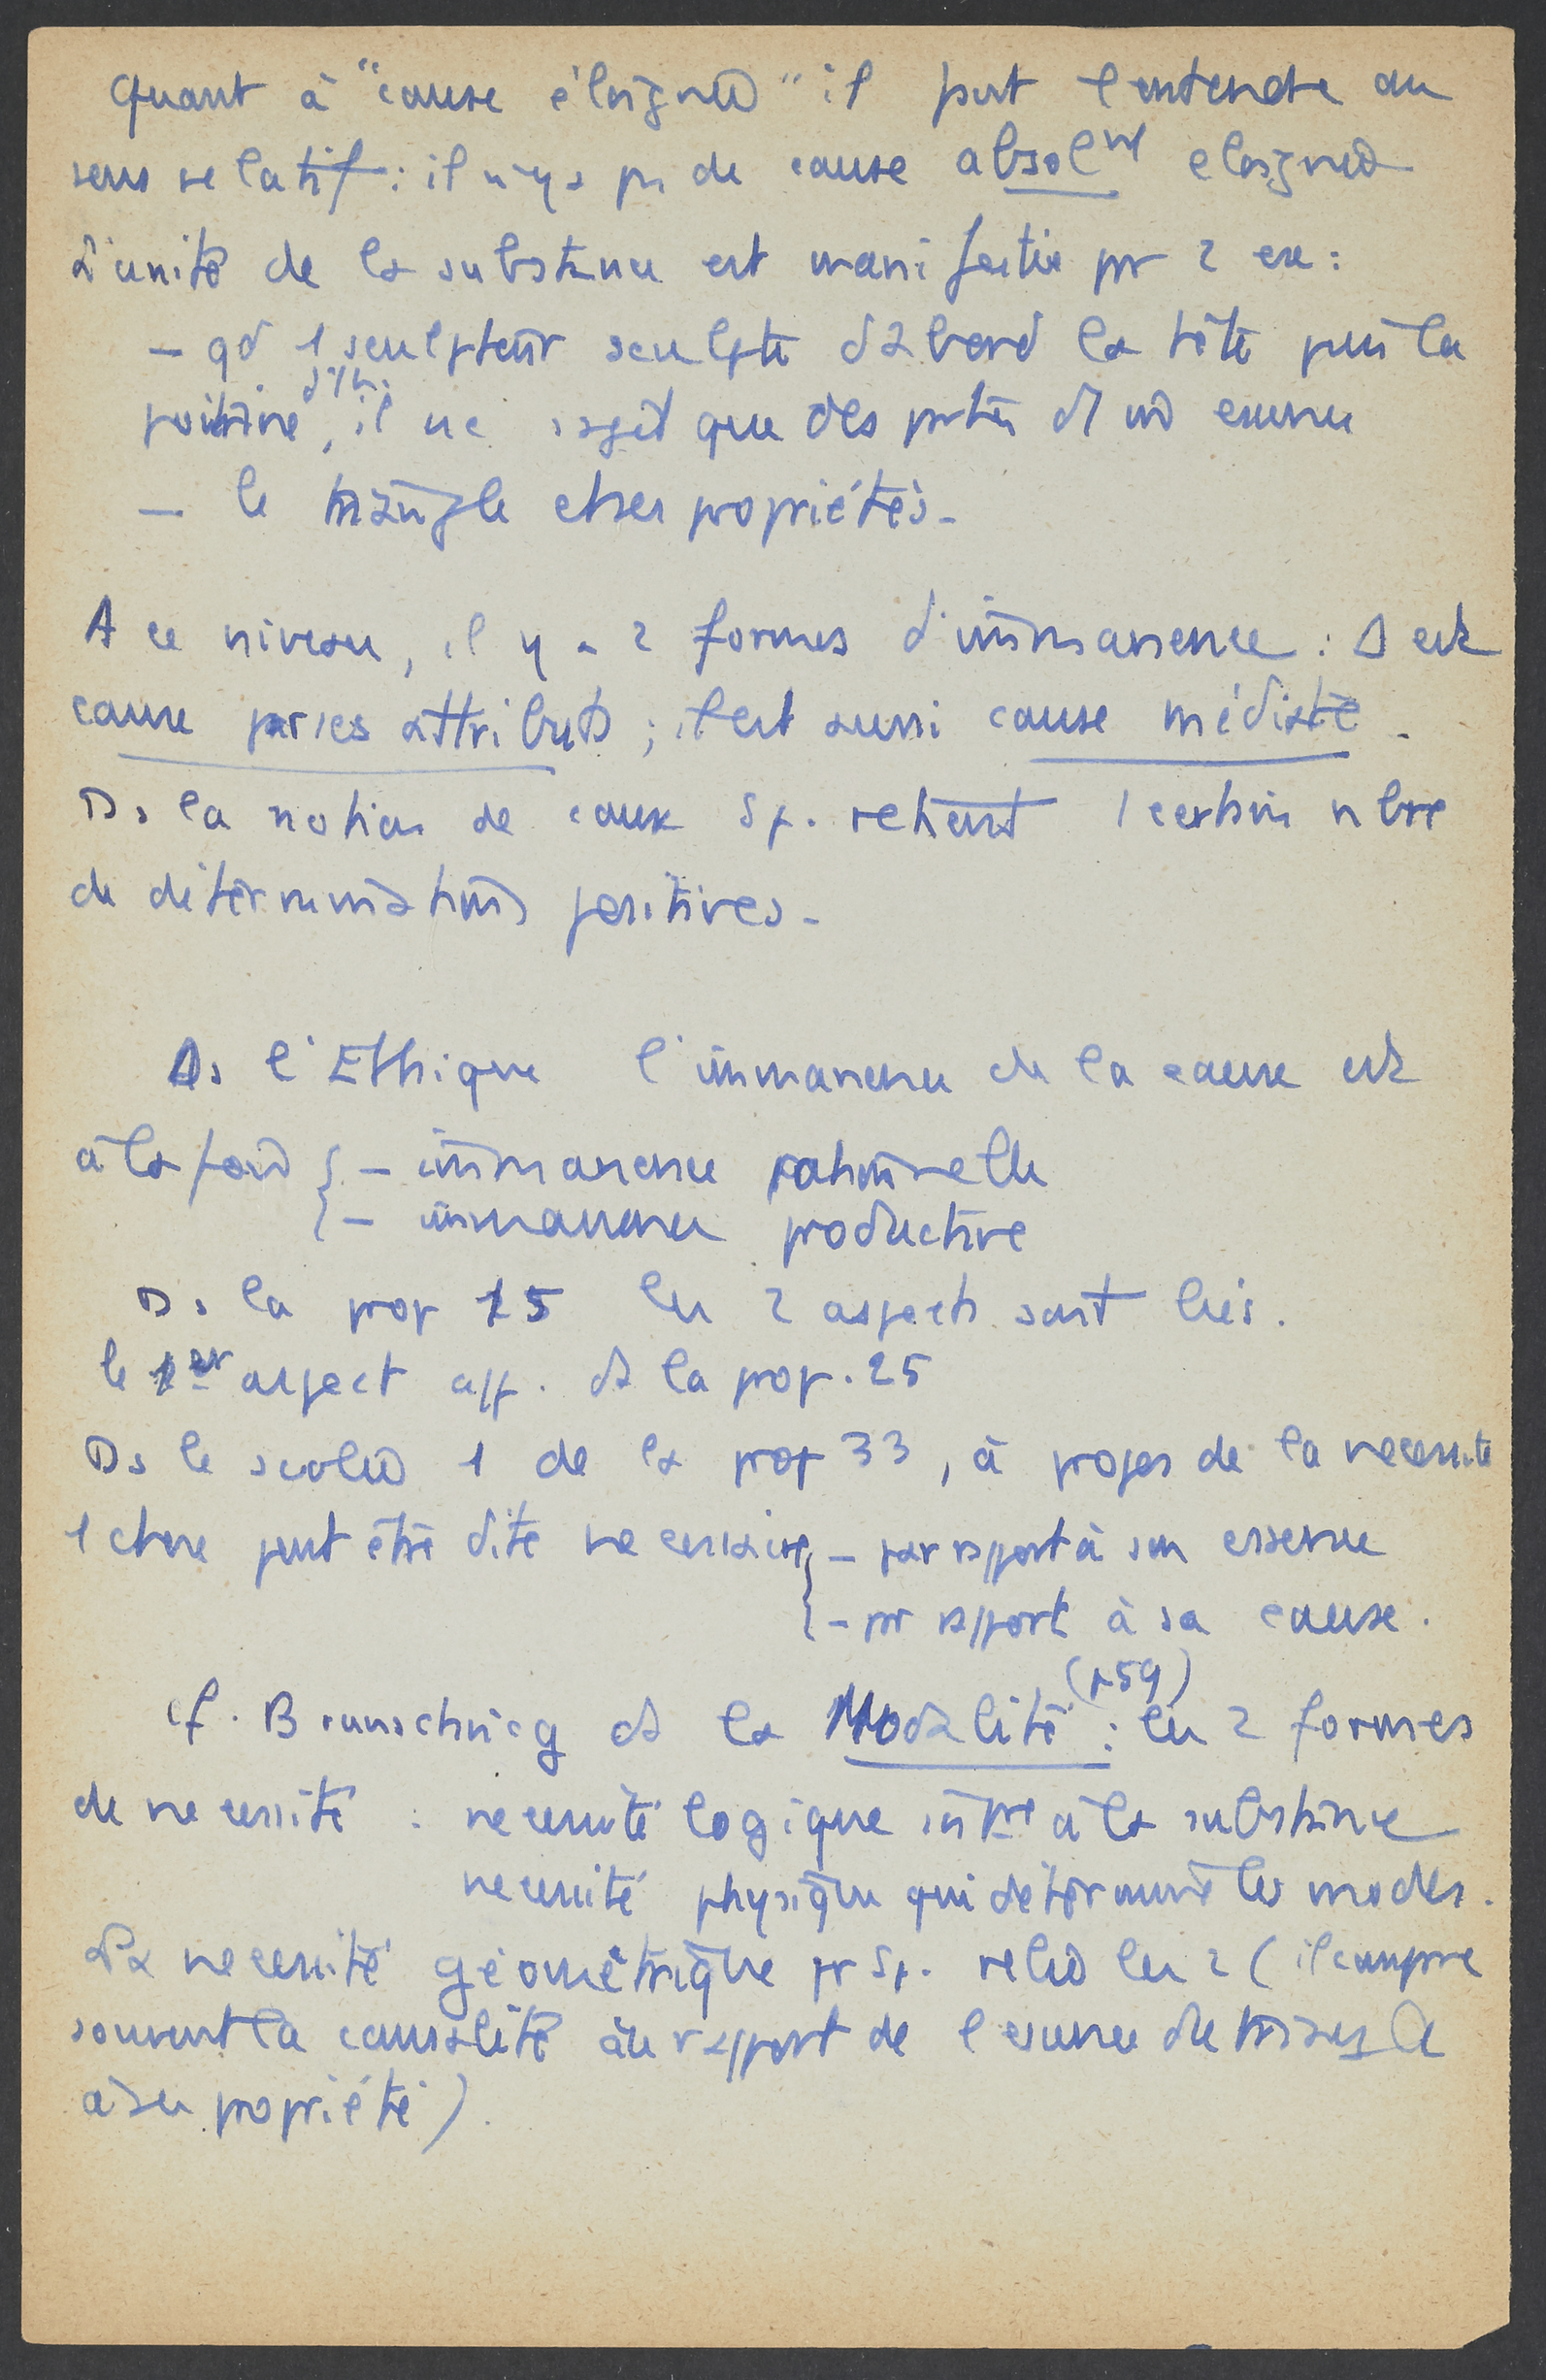 Quant à "cause éloignée" il faut l'entendre au
sens relatif : il n'y a pas de cause absolnt éloignée
L'unité de la substance est manifestée par 2 ex :
– qd 1 sculpteur sculpte d'abord la tête puis la
poitrine, il ne s'agit que des parties d'une essence
– le triangle et ses propriétés.
A ce niveau, il y a 2 formes d'immanence : D est
cause par ses attributs ; il est aussi cause médiate.
Ds la notion de cause Sp. retient 1 certain nbre
de déterminations positives.
Ds l'Ethique l'immanence de la cause est
à la fois { – immanence rationnelle
– immanence productive
Ds la prop 15 les 2 aspects sont liés.
le 1er aspect app. ds la prop. 25
Ds le scolie 1 de la prop 33, à propos de la nécessité
1 chose peut être dite nécessaire { – par rapport à son essence
– par rapport à sa cause.
cf. Brunschvicg ds la Modalité (p59) : les 2 formes
de nécessité : nécessité logique intre à la substance
nécessité physique qui détermine les modes.
La nécessité géométrique pr Sp. relie les 2 (il compare
souvent la causalité au rapport de l'essence du triangle
à ses propriété).